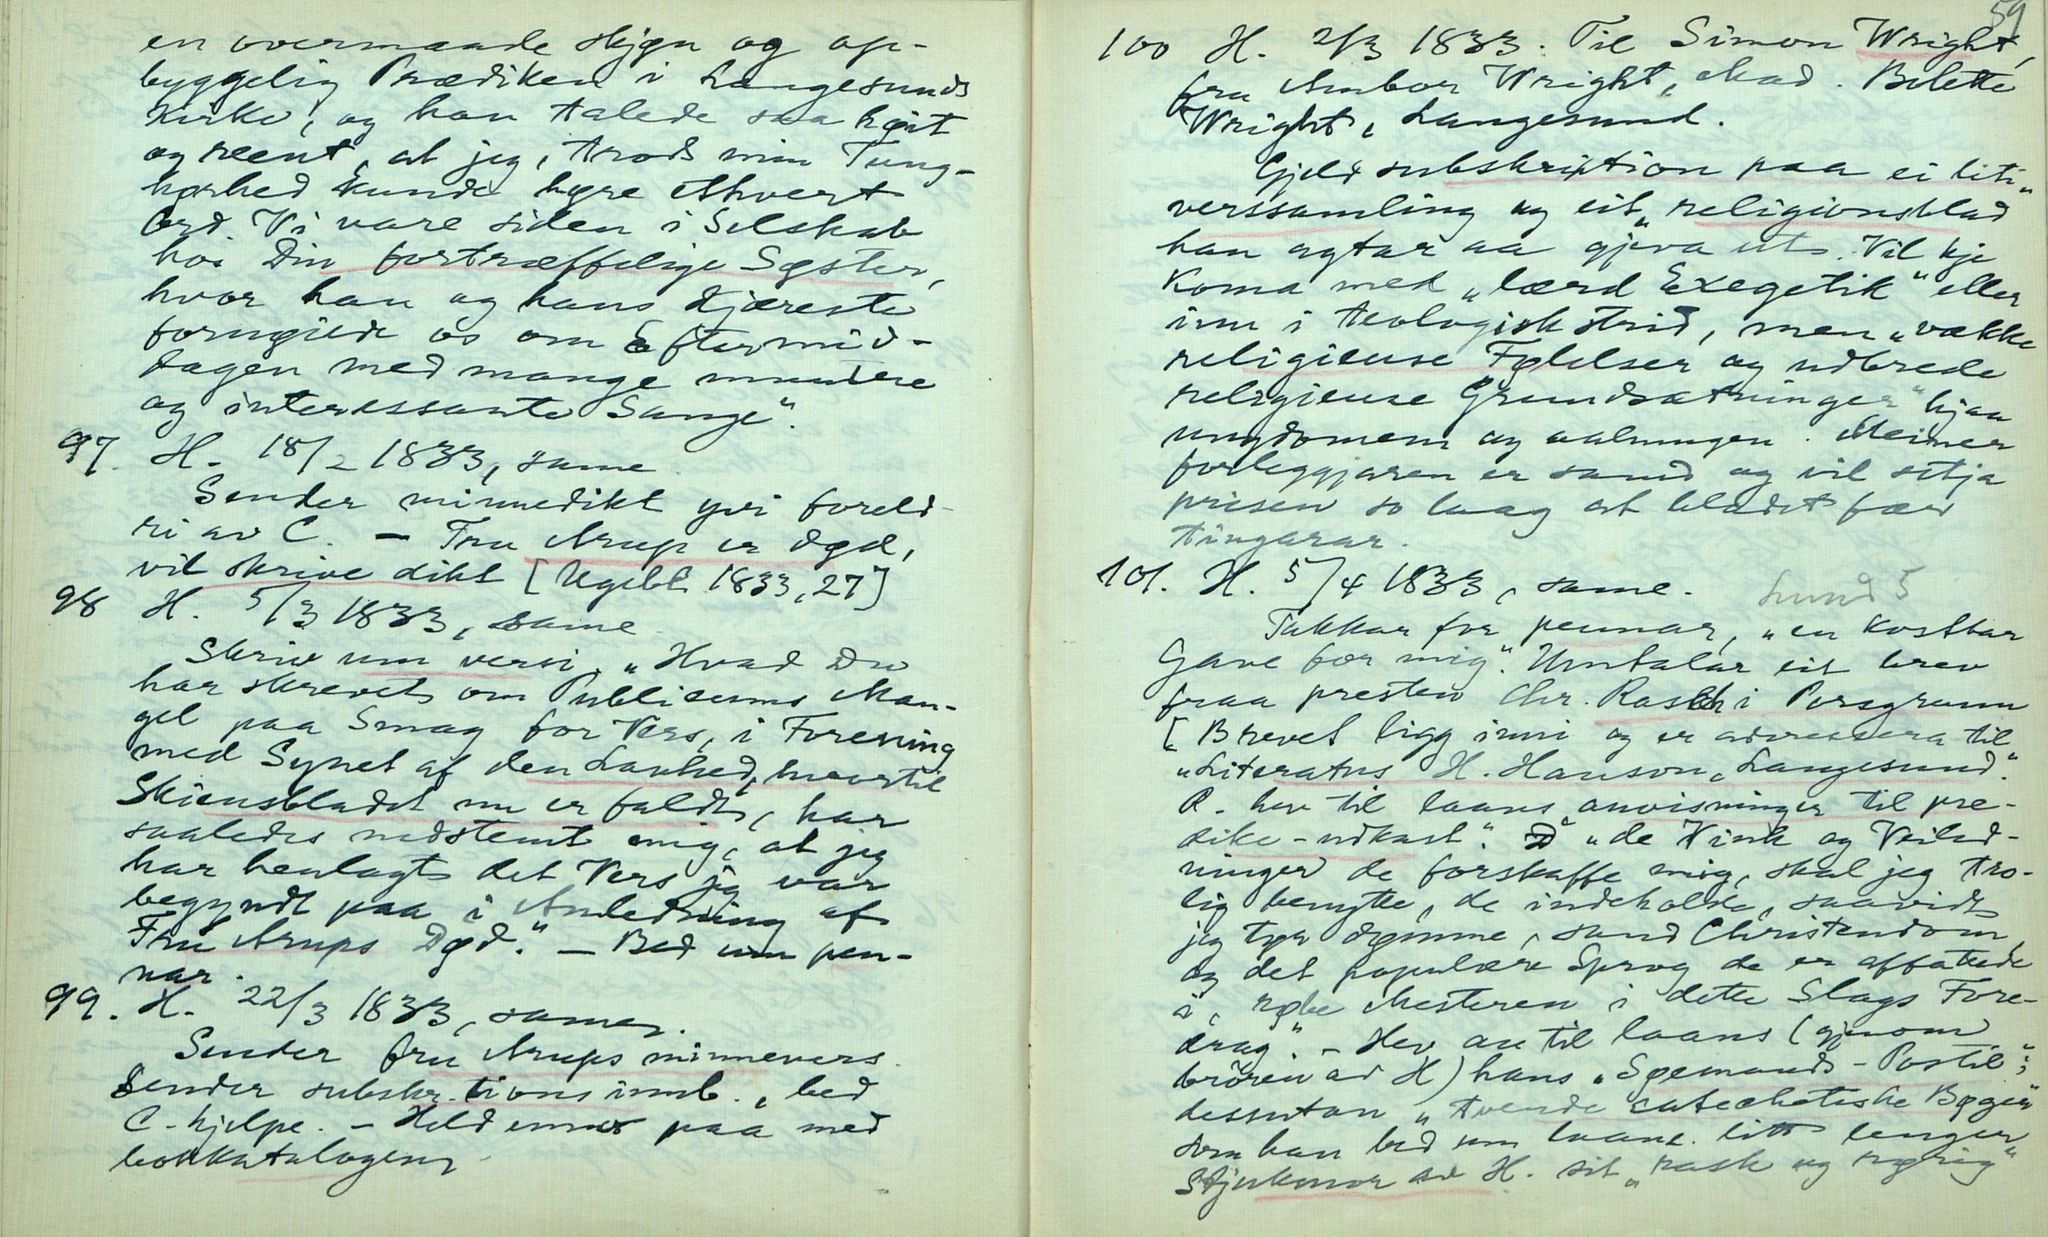 en overmaade skjøn og op-
byggelig Prædiken i Langesunds
Kirke, og han talede saa høit
og reent, at jeg, trods min Tung-
hørhed kunde høre ethvert
Ord. Vi vare siden i Selskab
hos Din fortræffelige Søster,
hvor han og hans Kjæreste
fornøiede os om Eftermid-
dagen med mange muntre
og interessante Sange".
97. H. 18/2 1833, same.
Sender minnedikt yvi foreld-
ri av C. — Fru Arup er død,
vil skrive dikt [Ugebl. 1833, 27]
98 H. 5/3 1833, same
Skriv um versi. "Hvad Du
har skrevet om Publicums Man-
gel paa Smag for Vers, i Forening
med Synet af den Lavhed, hvortil
Skiensbladet nu er faldt, har
saaledes nedstemt mig, at jeg
har henlagt det Vers jeg var
begyndt paa i Anledning af
Fru Arups Død." — Bed um pen-
nar.
99. H. 22/3 1833, same.
Sender fru Arups minnevers.
Sender subskr.tionsinnb., bed
C. hjelpe. — Held enno paa med
bokkatalogen
59
100 H. 2/3 1833. Til Simon Wright,
fru Anbor Wright, Mad. Bolette
Wright, Langesund.
Gjeld subskription paa ei liti
verssamling og eit "religionsblad"
han agtar aa gjeva ut. Vil kje
koma med "lærd Exegetik" eller
inn i teologisk strid, men "vække
religieuse Følelser og udbrede
religieuse Grundsætninger" hjaa
ungdomen og aalmugen. Meiner
forleggjaren er samd og vil setja
prisen so laag at bladet fær
tingarar.
101. H. 5/4 1833, same. Lund 5
Takkar for pennar, "en kostbar
Gave for mig". Umtalar eit brev
fraa presten Chr. Rasch i Porsgrunn
[Brevet ligg inni og er adressera til
"Literatus H. Hanson, Langesund".
R. hev til laans anvisninger til pre-
dike-udkast". "de Vink og Veiled-
ninger de forskaffe mig, skal jeg tro-
lig benytte, de indeholde, saavidt
jeg tør dømme, sand Christendom,
og det populære Sprog de er affattede
i, røbe Mesteren i dette Slags Fore-
drag." — Hev au til laans (gjenom
broren av H) hans "Søemands-Postil";
dessutan "tvende catechetiske Bøger"
som han bed um laane litt lenger
Stjukmor av H. sit "rask og rørig"